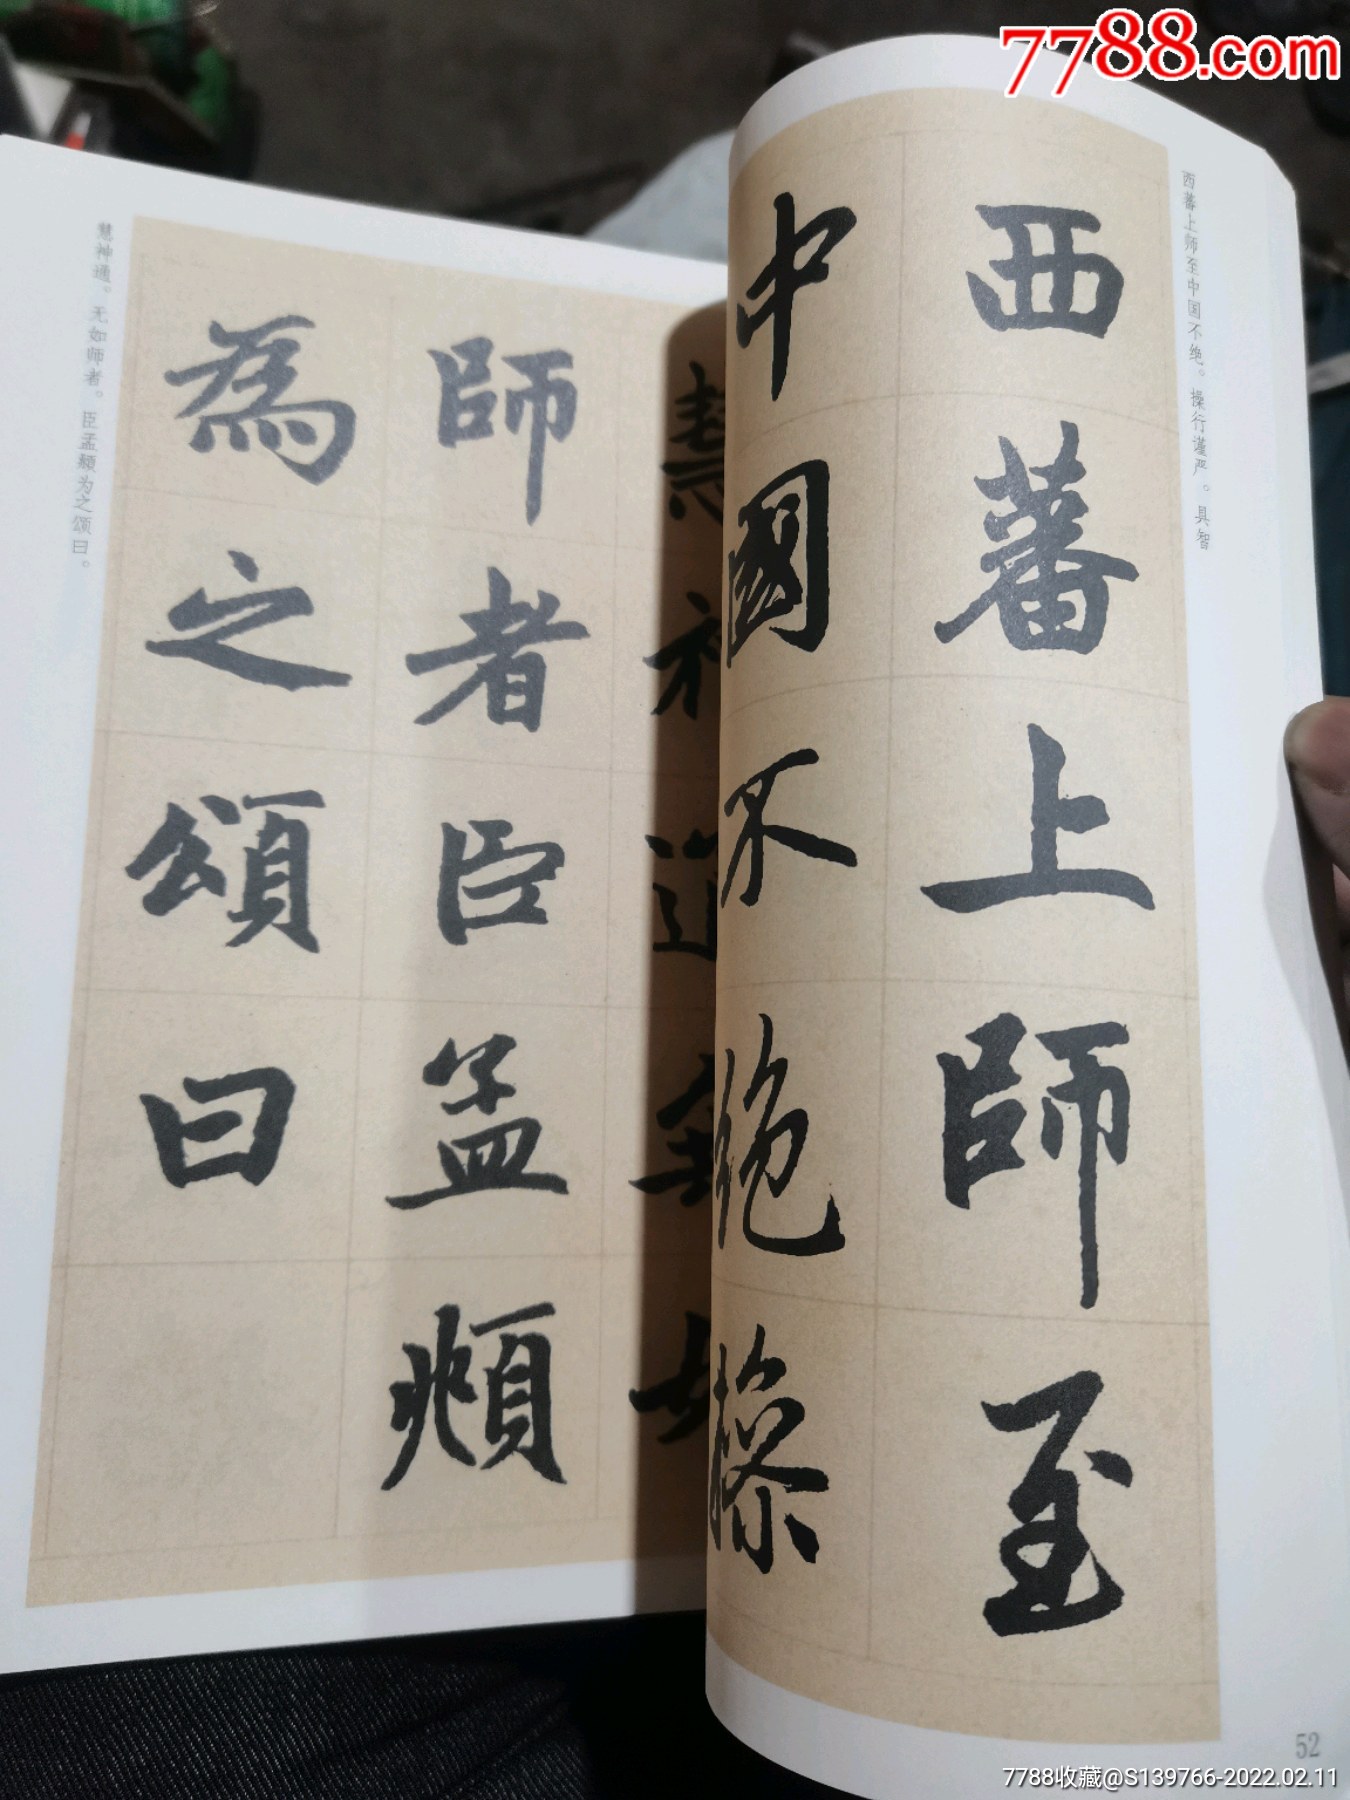 7788.com
西蕃上师至中国不绝。操行谨严。具智
西蕃上師至
中國不絶操
慧神通無如
師者臣孟頫
為之頌曰
慧神通。无如师者。臣孟頫为之颂曰。
52
7788收藏@S139766-2022.02.11